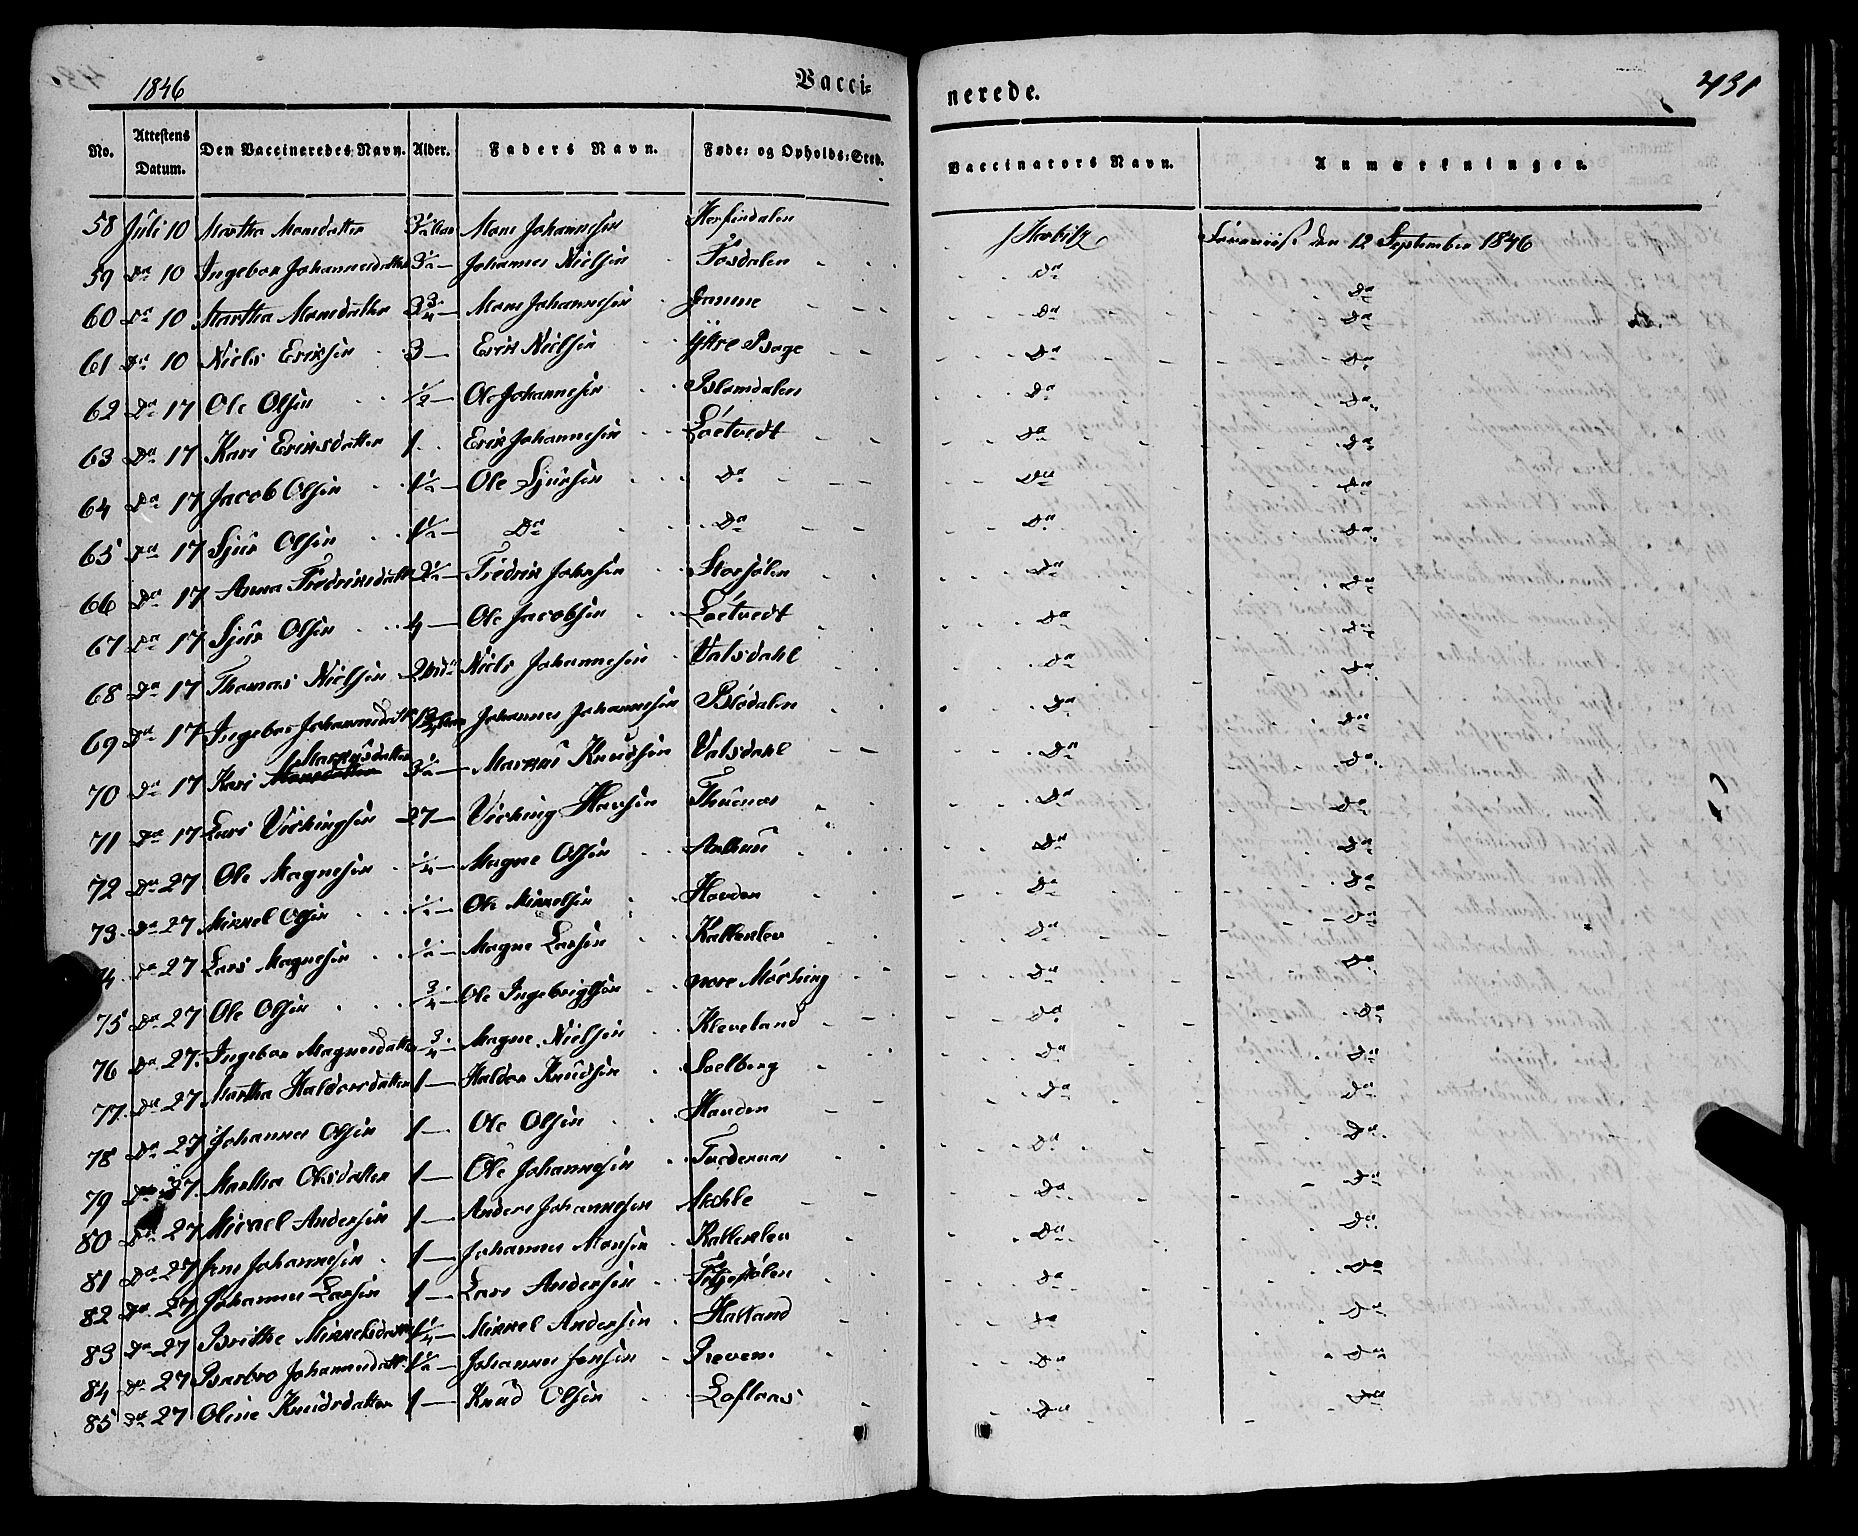 1846 Vacci=
nerede. 431
No. Attestens Datum. Den Vaccineredes Navn. Alder. Faders Navn. Føde= og Opholds=Sted. Vaccinators Navn. Anmærkninger.
58 Juli 10 Martha Monsdatter 3½ Mons Johannesen Fremviist den 12 September 1846
59 Do 10 Ingebor Johannesdatter 3½ — Johannes Nielsen Fosdalen Do Do
60 Do 10 Martha Monsdatter 2¾ — Mons Johannesen Do Do
61 Do 10 Niels Eriksen 3 — Erik Nielsen Ijttre Bøge Do Do
62 Do 17 Ole Olsen ½ — Ole Johannesen Blomdalen Do Do
63 Do 17 Kari Eriksdatter 1 Erik Johannesen Loetvedt Do Do
64 Do 17 Jacob Olsen 1½ — Ole Sjursen Do Do Do
65 Do 17 Sjur Olsen 1½ — Do Do Do Do
66 Do 17 Anna Fredriksdatt 2½ — Fredrik Johnsen Storsølen Do Do
67 Do 17 Sjur Olsen 4 — Ole Jacobsen Loetvedt Do Do
68 Do 17 Thomas Nielsen Niels Johannesen Valsdahl Do Do
69 Do 17 Ingebor Johannesdatt Johannes Johannesen Blødalen Do Do
70 Do 17 Kari Markusdatter 3½ — Markus Knudsen Valsdahl Do Do
71 Do 17 Lars Vichingsen 27 — Viching Hansen Thuenes Do Do
72 Do 27 Ole Magnesen ¼ — Magne Olsen Do Do
73 Do 27 Mikkel Olsen ½ — Ole Mikkelsen Do Do
74 Do 27 Lars Magnesen ½ — Magne Larsen Kalleklev Do Do
75 Do 27 Ole Olsen ¾ — Ole Ingebrigtsen nore Mørking Do Do
76 Do 27 Ingebor Magnesdatt ¾ — Magne Nielsen Kleveland Do Do
77 Do 27 Martha Haldorsdatter 1 — Haldor Knudsen Soelberg Do Do
78 Do 27 Johannes Olsen 1 — Ole Olsen Do Do
79 Do 27 Martha Olsdatter 1 — Ole Johannesen Do Do
80 Do 27 Mikkel Andersen 1 — Anders Johannesen Do Do
81 Do 27 Jens Johannesen 1 — Johannes Monsen Kalleklev Do Do
82 Do 27 Johannes Larsen 1 — Lars Andersen Do Do
83 Do 27 Brithe Mikkelsdatt 1¼ — Mikkel Andersen Halland Do Do
84 Do 27 Barbro Johannesdatt 1½ — Johannes Jensen Reven Do Do
85 Do 27 Oline Knudsdatter 1 — Knud Olsen Loflaas Do Do